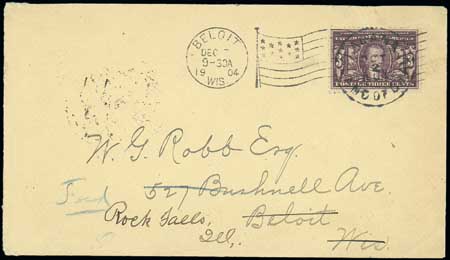 BELOIT
DEC
9-30A
1904
WIS.
3 3
POSTAGE THREE CENTS
INC OF
W. G. Robb Esq.
527 Bushnell Ave.
Rock Falls, Beloit
Ill, Wis